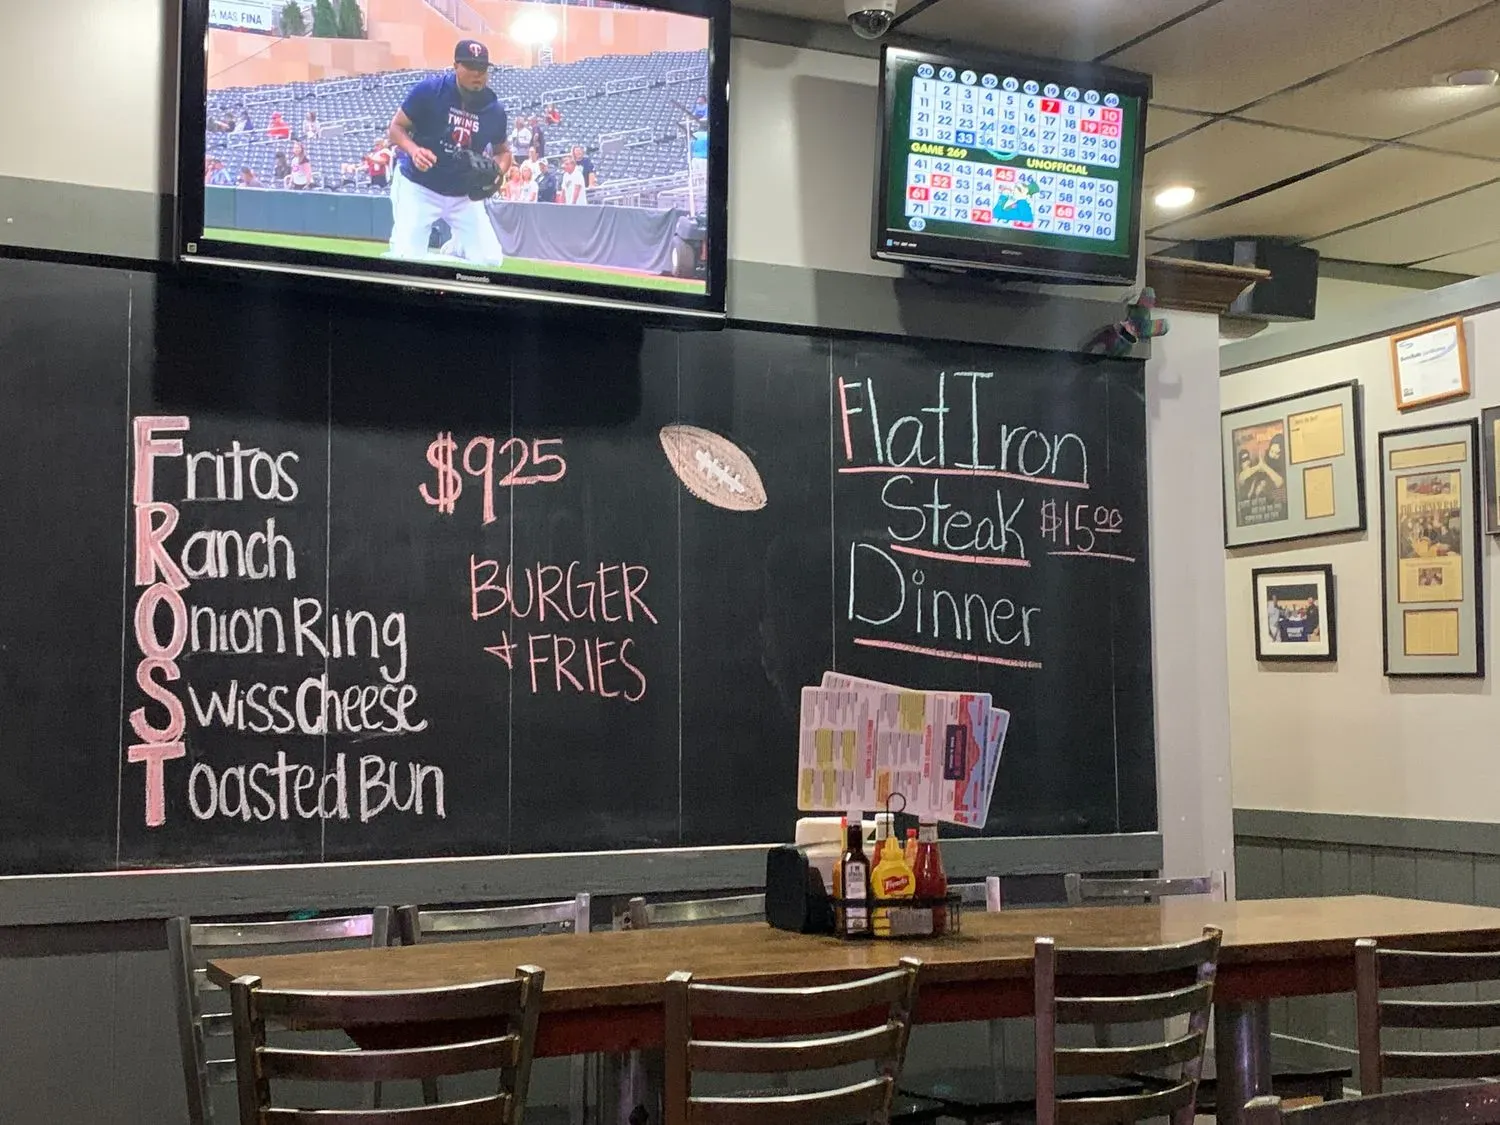 A MAS FINA
T
TWINS
T
Panasonic
20 76 7 52 61 45 19 74 10 68
1 2 3 4 5 6 7 8 9 10
11 12 13 14 15 16 17 18 19 20
21 22 23 24 25 26 27 28 29 30
31 32 33 34 35 36 37 38 39 40
GAME 269 UNOFFICIAL
41 42 43 44 45 46 47 48 49 50
51 52 53 54 57 58 59 60
61 62 63 64 67 68 69 70
71 72 73 74 77 78 79 80
33
Fritos
Ranch
Onion Ring
Swiss Cheese
Toasted Bun
$925
BURGER
+ FRIES
FlatIron
Steak $15.00
Dinner
French's